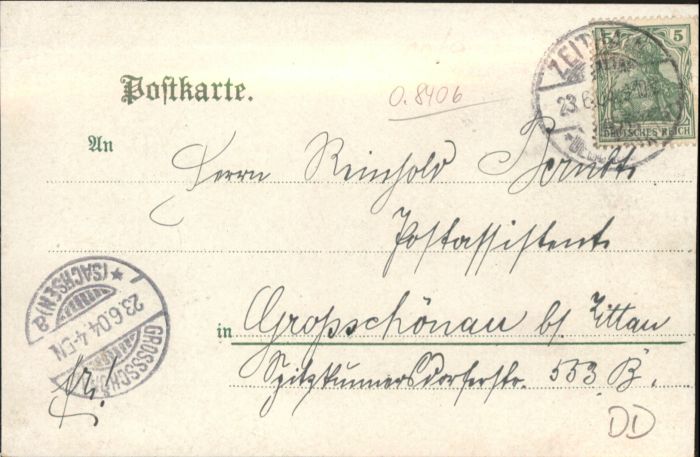 Postkarte.
0.8406
5 5
DEUTSCHES REICH
ZEITHAIN
23.6.04
An Herrn Reinhold Berndt
Postassistent
in Grosschönau b/ Zittau
Spitzkunnersdorferstr. 553 B.
GROSSSCH
(SACHSEN) a
23.6.04.4-5N.
DD